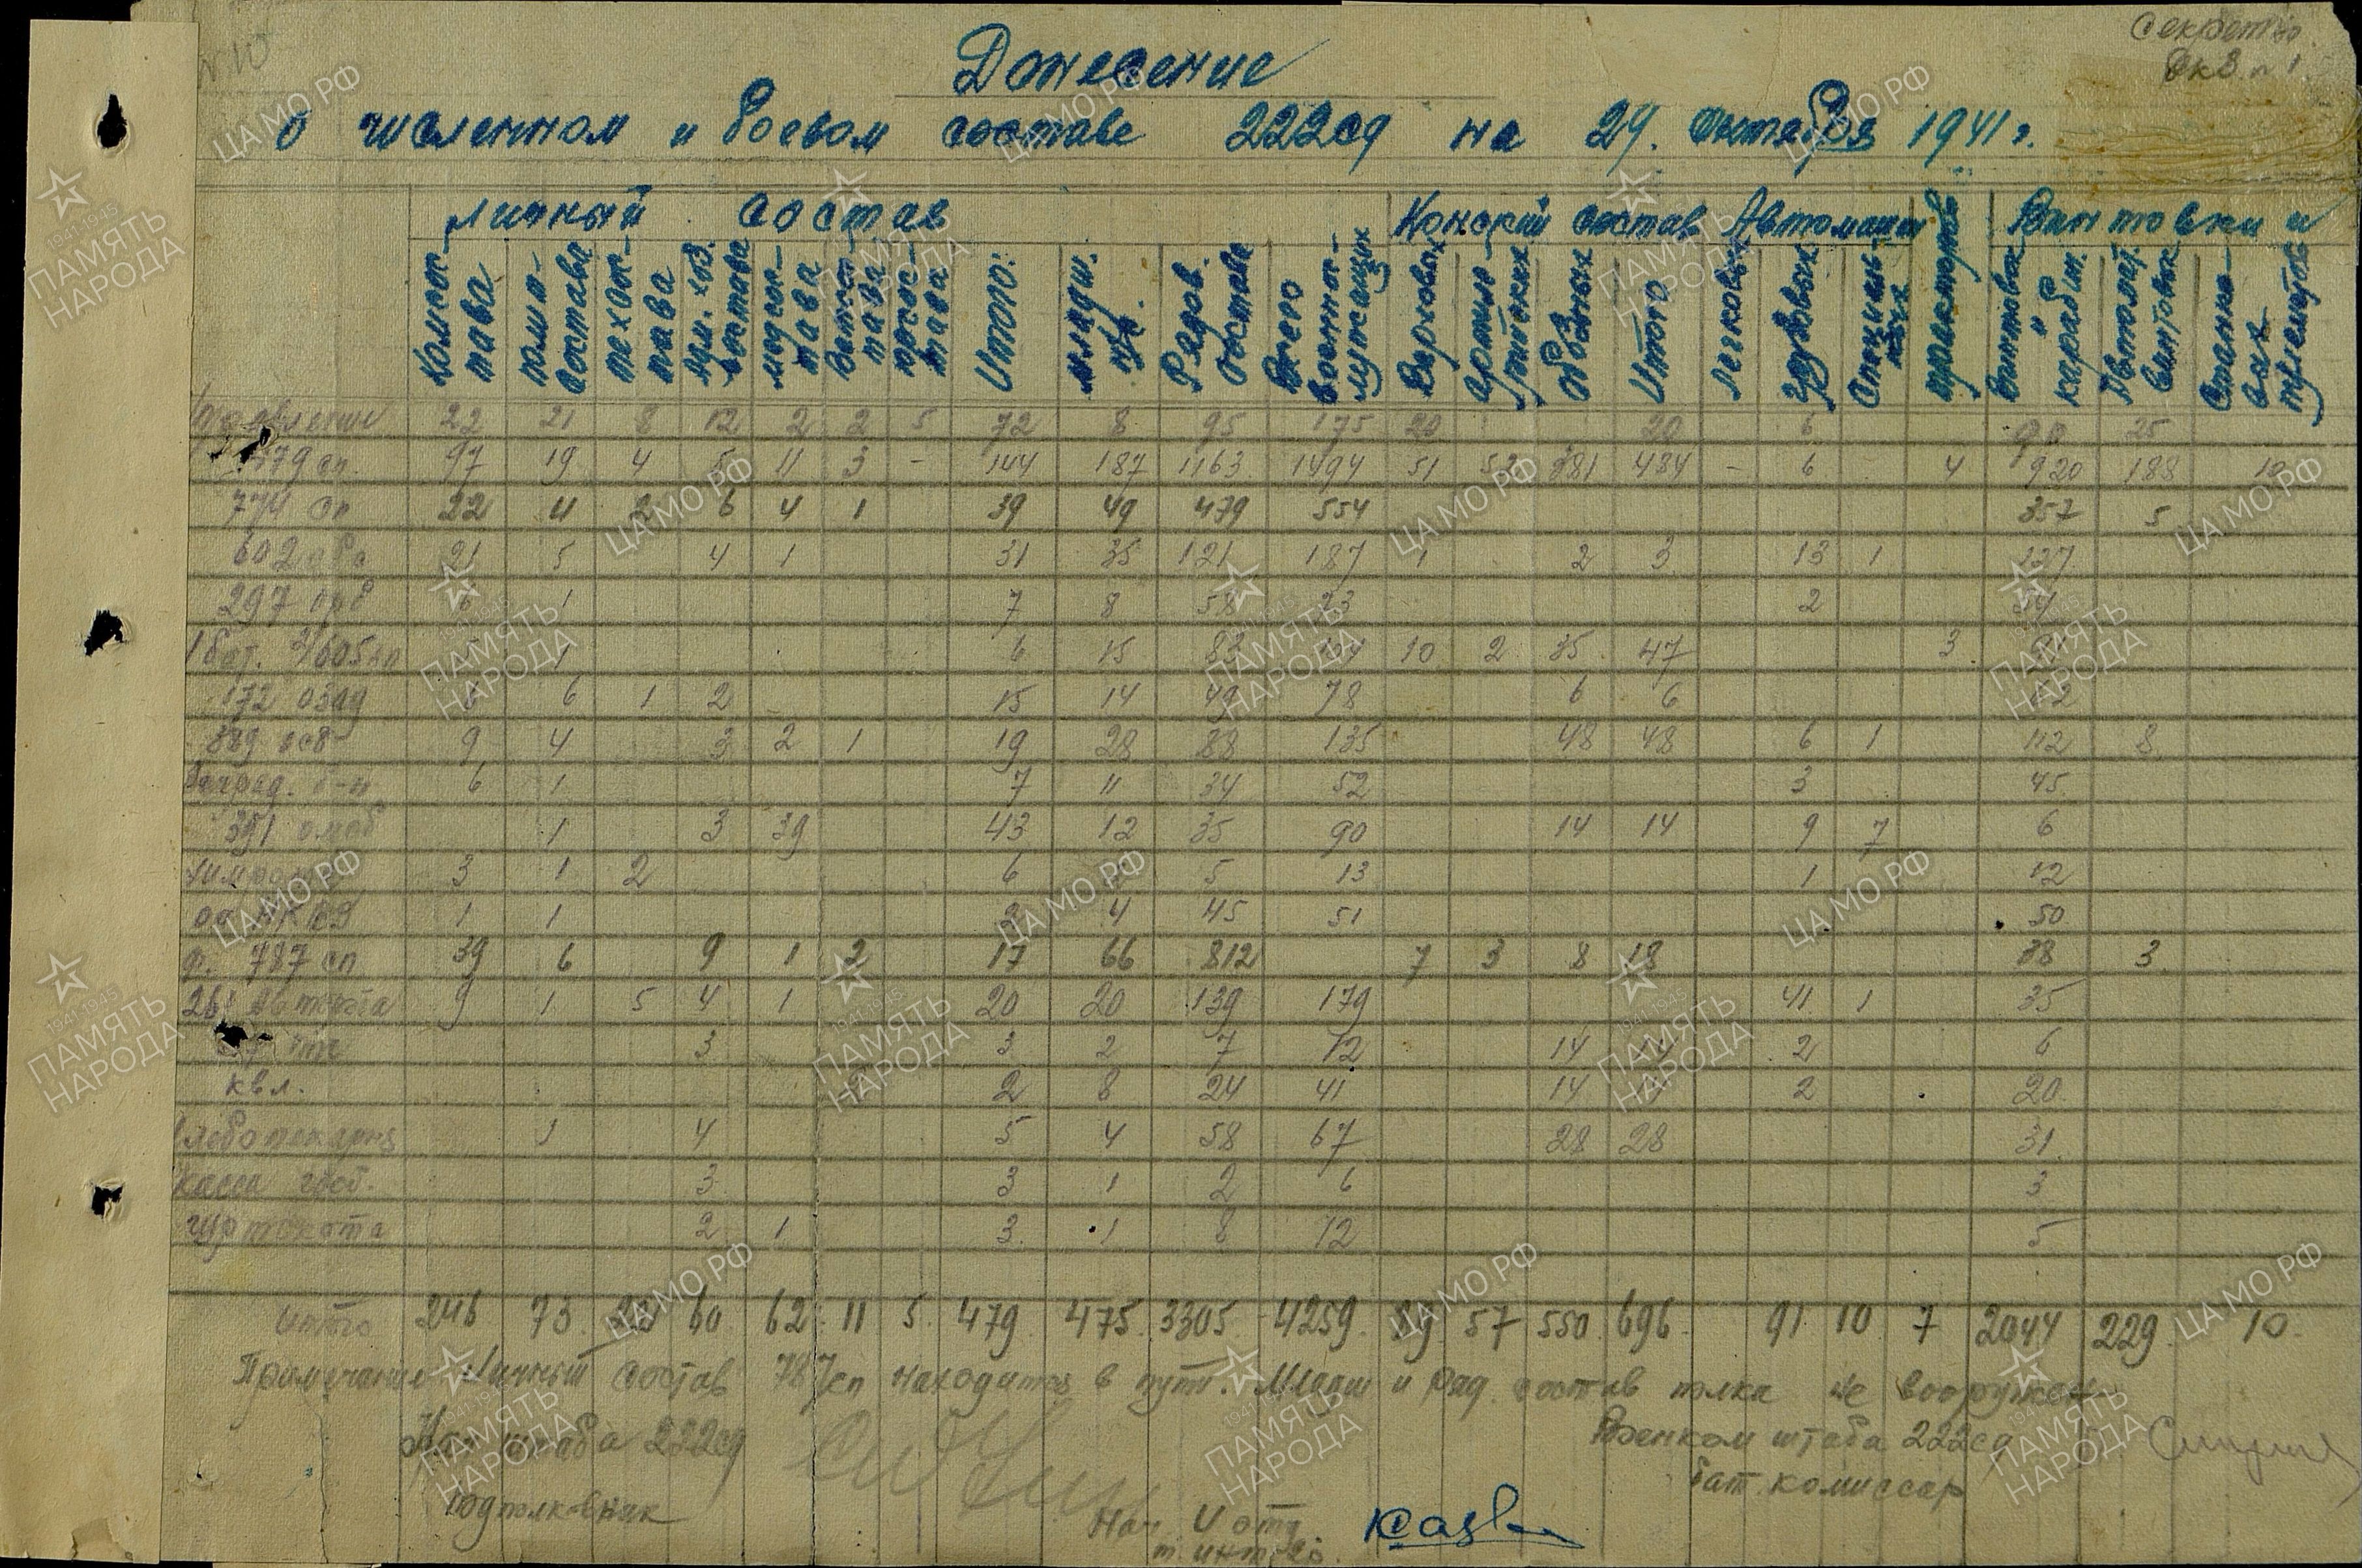 Секретно
Экз. № 1
Донесение
о численном и боевом составе 222сд на 29. Октября 1941г.
личный состав Конский состав Автомашин Винтовки и
Комсостава
полит-состава
техсостава
адм. хоз. состава
медсостава
Ветсостава
Итого:
младш. н/с.
Рядов. состава
Всего военнослужащих
Верховых
артиллерийских
Обозных
Итого
легковых
грузовых
Специальных
тракторов
винтовок и карабин.
Автомат. винтовок
Станковых пулеметов
Управление 22 21 8 12 2 2 5 72 8 95 175 20 20 6 90 25
479 сп. 97 19 4 5 11 3 - 144 187 1163 1494 51 52 381 484 - 6 4 920 188 10
774 сп 22 4 2 6 4 1 39 49 479 554 357 5
602 21 5 4 1 31 35 121 187 1 2 3 13 1 127
297 6 1 7 8 58 73 2 54
1 бат. 1 6 15 83 104 10 2 35 47 3
172 6 6 1 2 15 14 49 78 6 6
889 9 4 3 2 1 19 28 88 135 48 48 6 1 112 8
Заград. б-н 6 1 7 11 34 52 3 45
391 омсб 1 3 39 43 12 35 90 14 14 9 7 6
3 1 2 6 2 5 13 1 12
НКВД 1 1 2 4 45 51 50
787 сп 39 6 9 1 2 17 66 812 7 3 8 18 38 3
Автрота 9 1 5 4 1 20 20 139 179 41 1 35
3 3 2 7 12 14 14 2 6
2 8 24 41 14 2 20
Хлебопекарня 1 4 5 4 58 67 28 28 31
Касса госб. 3 3 1 2 6 3
2 1 3 1 8 12 5
итого 246 73 22 60 62 11 5 479 475 3305 4259 89 57 550 696 91 10 7 2044 229 10
Примечание Личный состав 787сп находится в пути. Младш и ряд. состав полка не вооружен
Нач штаба 222сд
Военком штаба 222сд
подполковник
бат. комиссар
Нач. 4 отд.
ЦАМО РФ
ПАМЯТЬ НАРОДА
1941-1945